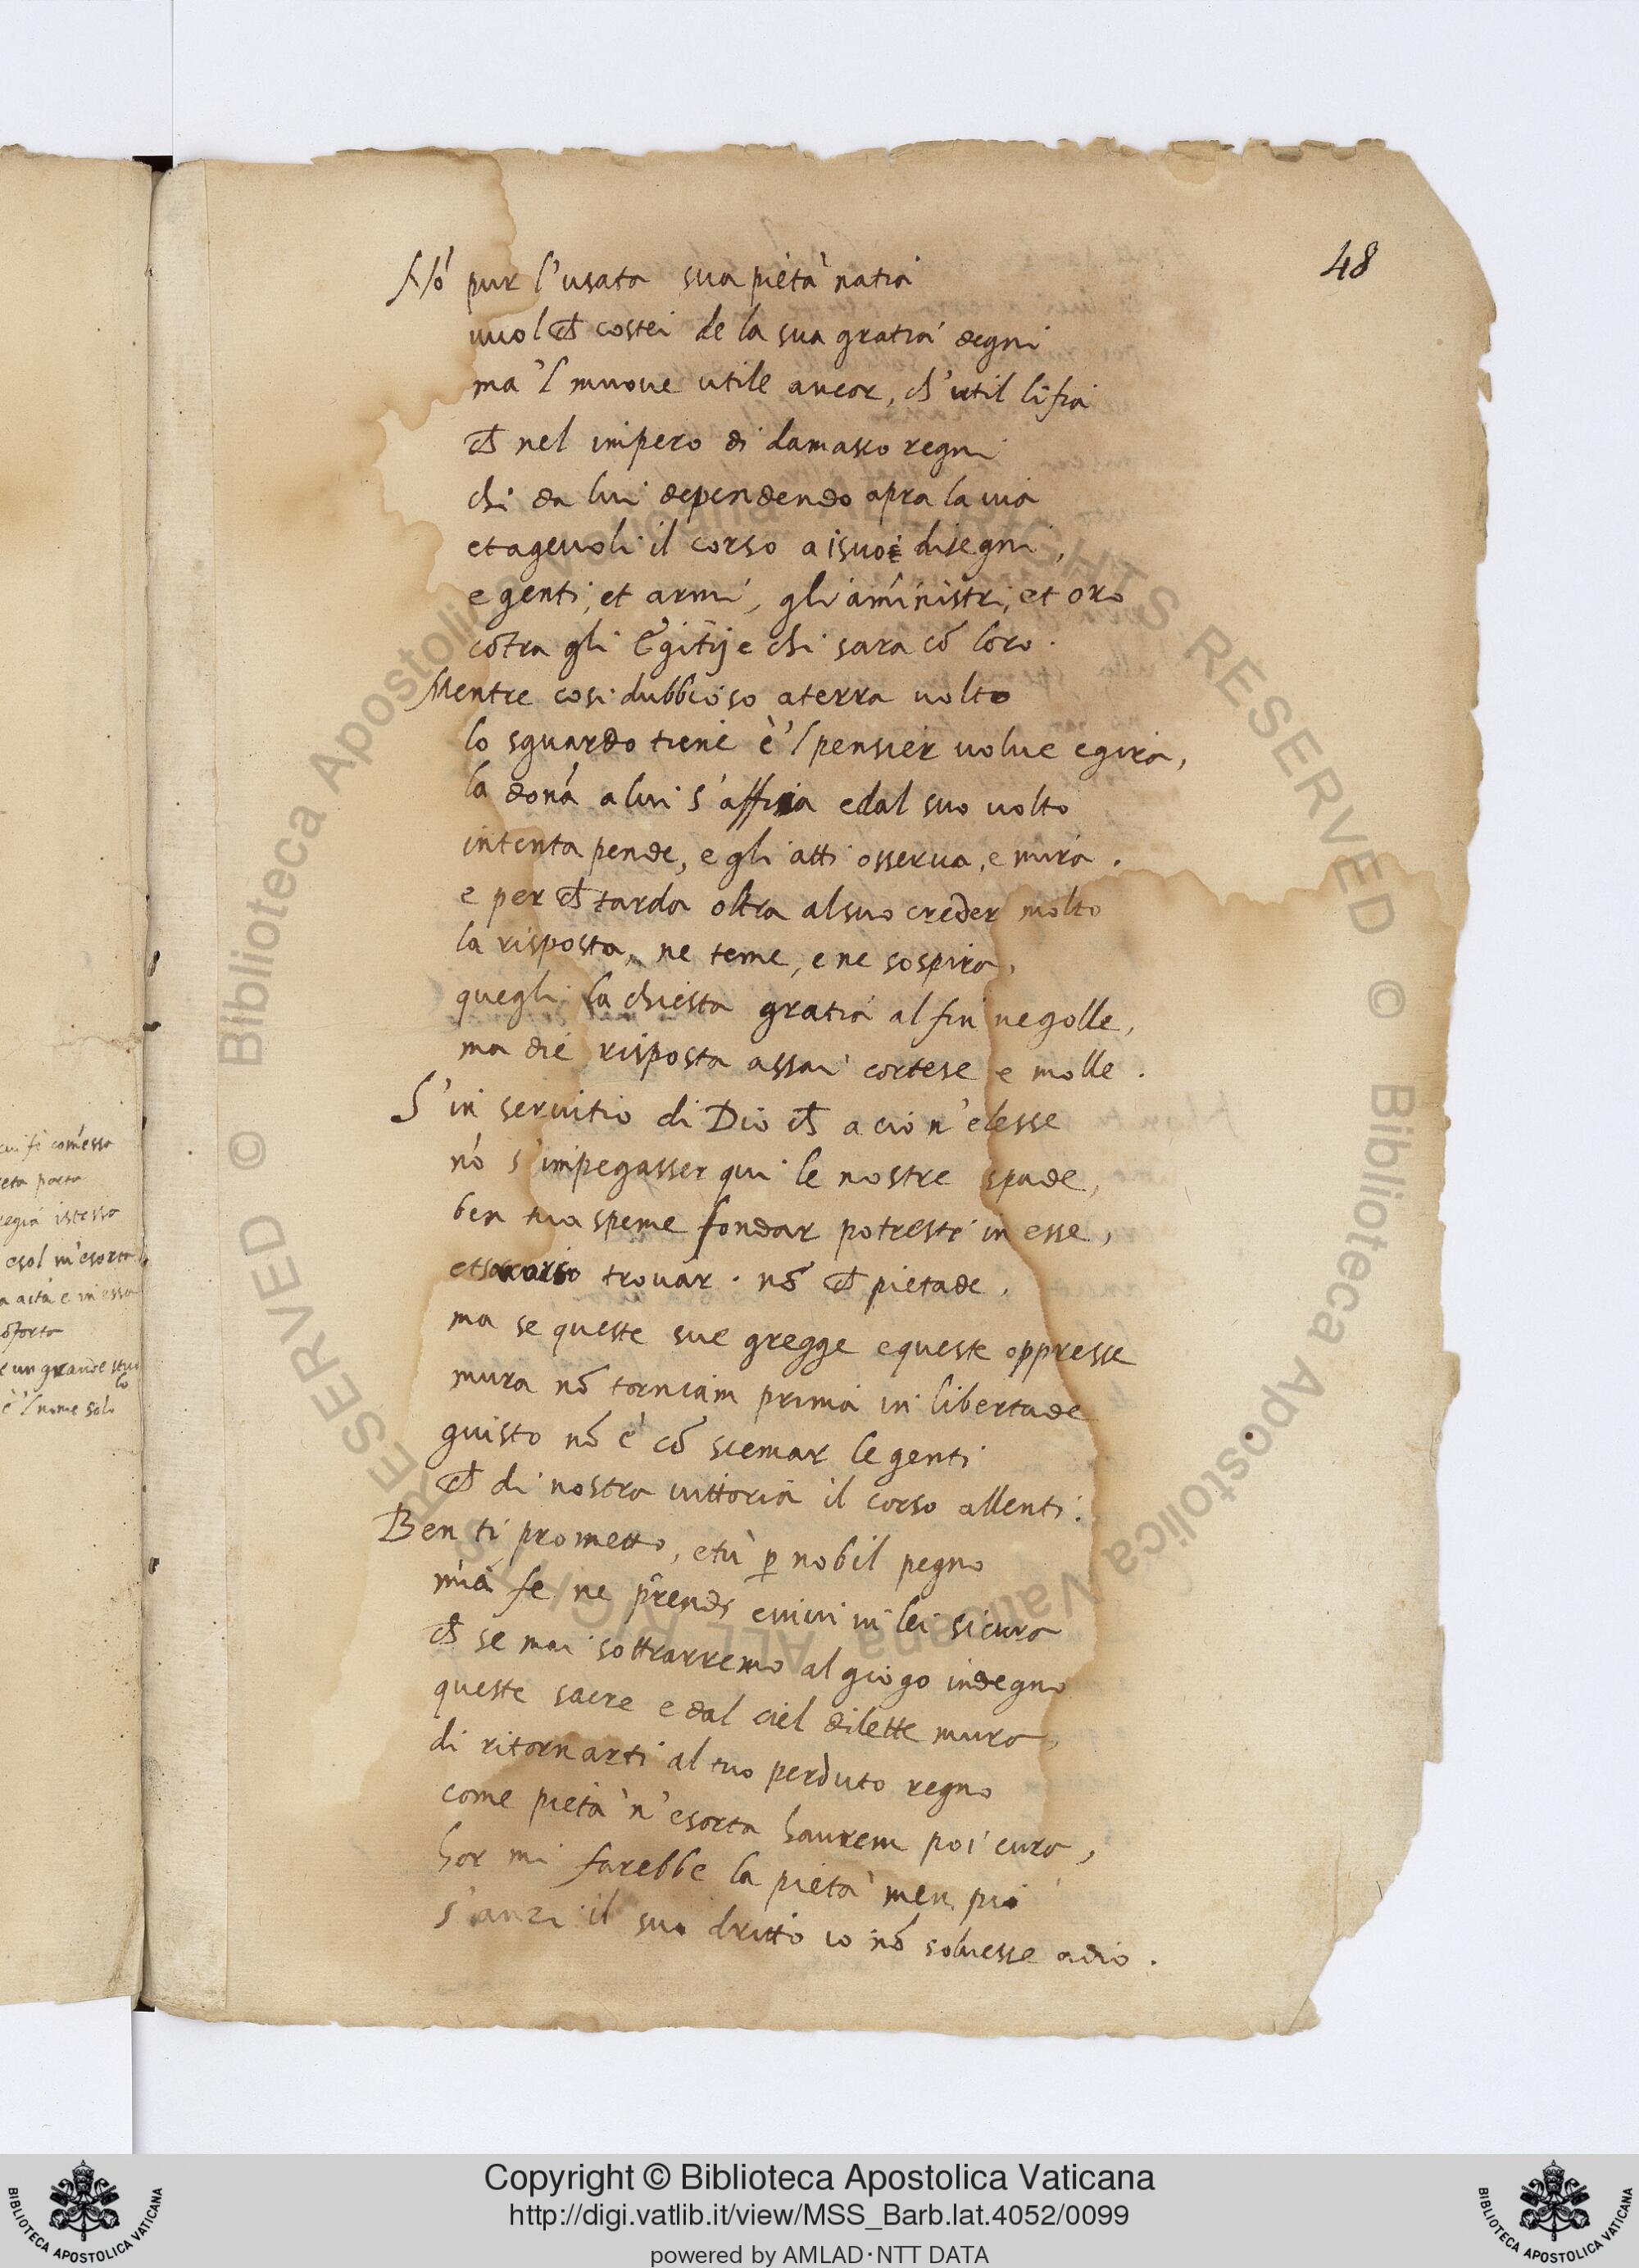 48
Nō pur l'usata sua pietà natia
vuol ch costei de la sua gratia degni
ma 'l muove utile ancor, ch'util li fia
ch nel impero di damasco regni
chi da lui dependendo apra la via
et agevoli il corso a i suoi disegni,
e genti, et armi, gli aministri, et oro
cōtra gli Egitij e chi sara cō loro.
Mentre cosi dubbioso a terra volto
lo sguardo tiene e 'l pensier volve e gira,
la dona a lui s'affisa e dal suo volto
intenta pende, e gli atti osserva, e mira.
e per ch tarda oltra al suo creder molto
la risposta, ne teme, e ne sospira,
quegli la chiesta gratia al fin negolle,
ma diè risposta assai cortese e molle.
S'in servitio di Dio ch a ciò n'elesse
nō s'impegasser qui le nostre spade,
ben tua speme fondar potresti in esse,
et soccorso trovar. nō ch pietade.
ma se queste sue gregge e queste oppresse
mura nō torniam prima in libertade
giusto nō è cō scemar le genti
ch di nostra vittoria il corso allenti.
Ben ti prometto, e tù p nobil pegno
mia fe ne prendi e vivi in lei sicura
ch se mai sottrarremo al giogo indegno
queste sacre e dal ciel dilette mura,
di ritornarti al tuo perduto regno
come pietà n'esorta haurem poi cura,
hor mi farebbe la pietà men pio
s'anzi il suo dritto io nō solvesse a dio.
cui fè comessa
eta porta
regia istessa
e sol m'esorta
a aità e in essa
ōforto
e un grande stuo
lo
e 'l nome solo
© Biblioteca Apostolica Vaticana ALL RIGHTS RESERVED
© Biblioteca Apostolica Vaticana ALL RIGHTS RESERVED
BIBLIOTECA APOSTOLICA VATICANA
Copyright © Biblioteca Apostolica Vaticana
http://digi.vatlib.it/view/MSS_Barb.lat.4052/0099
powered by AMLAD·NTT DATA
BIBLIOTECA APOSTOLICA VATICANA